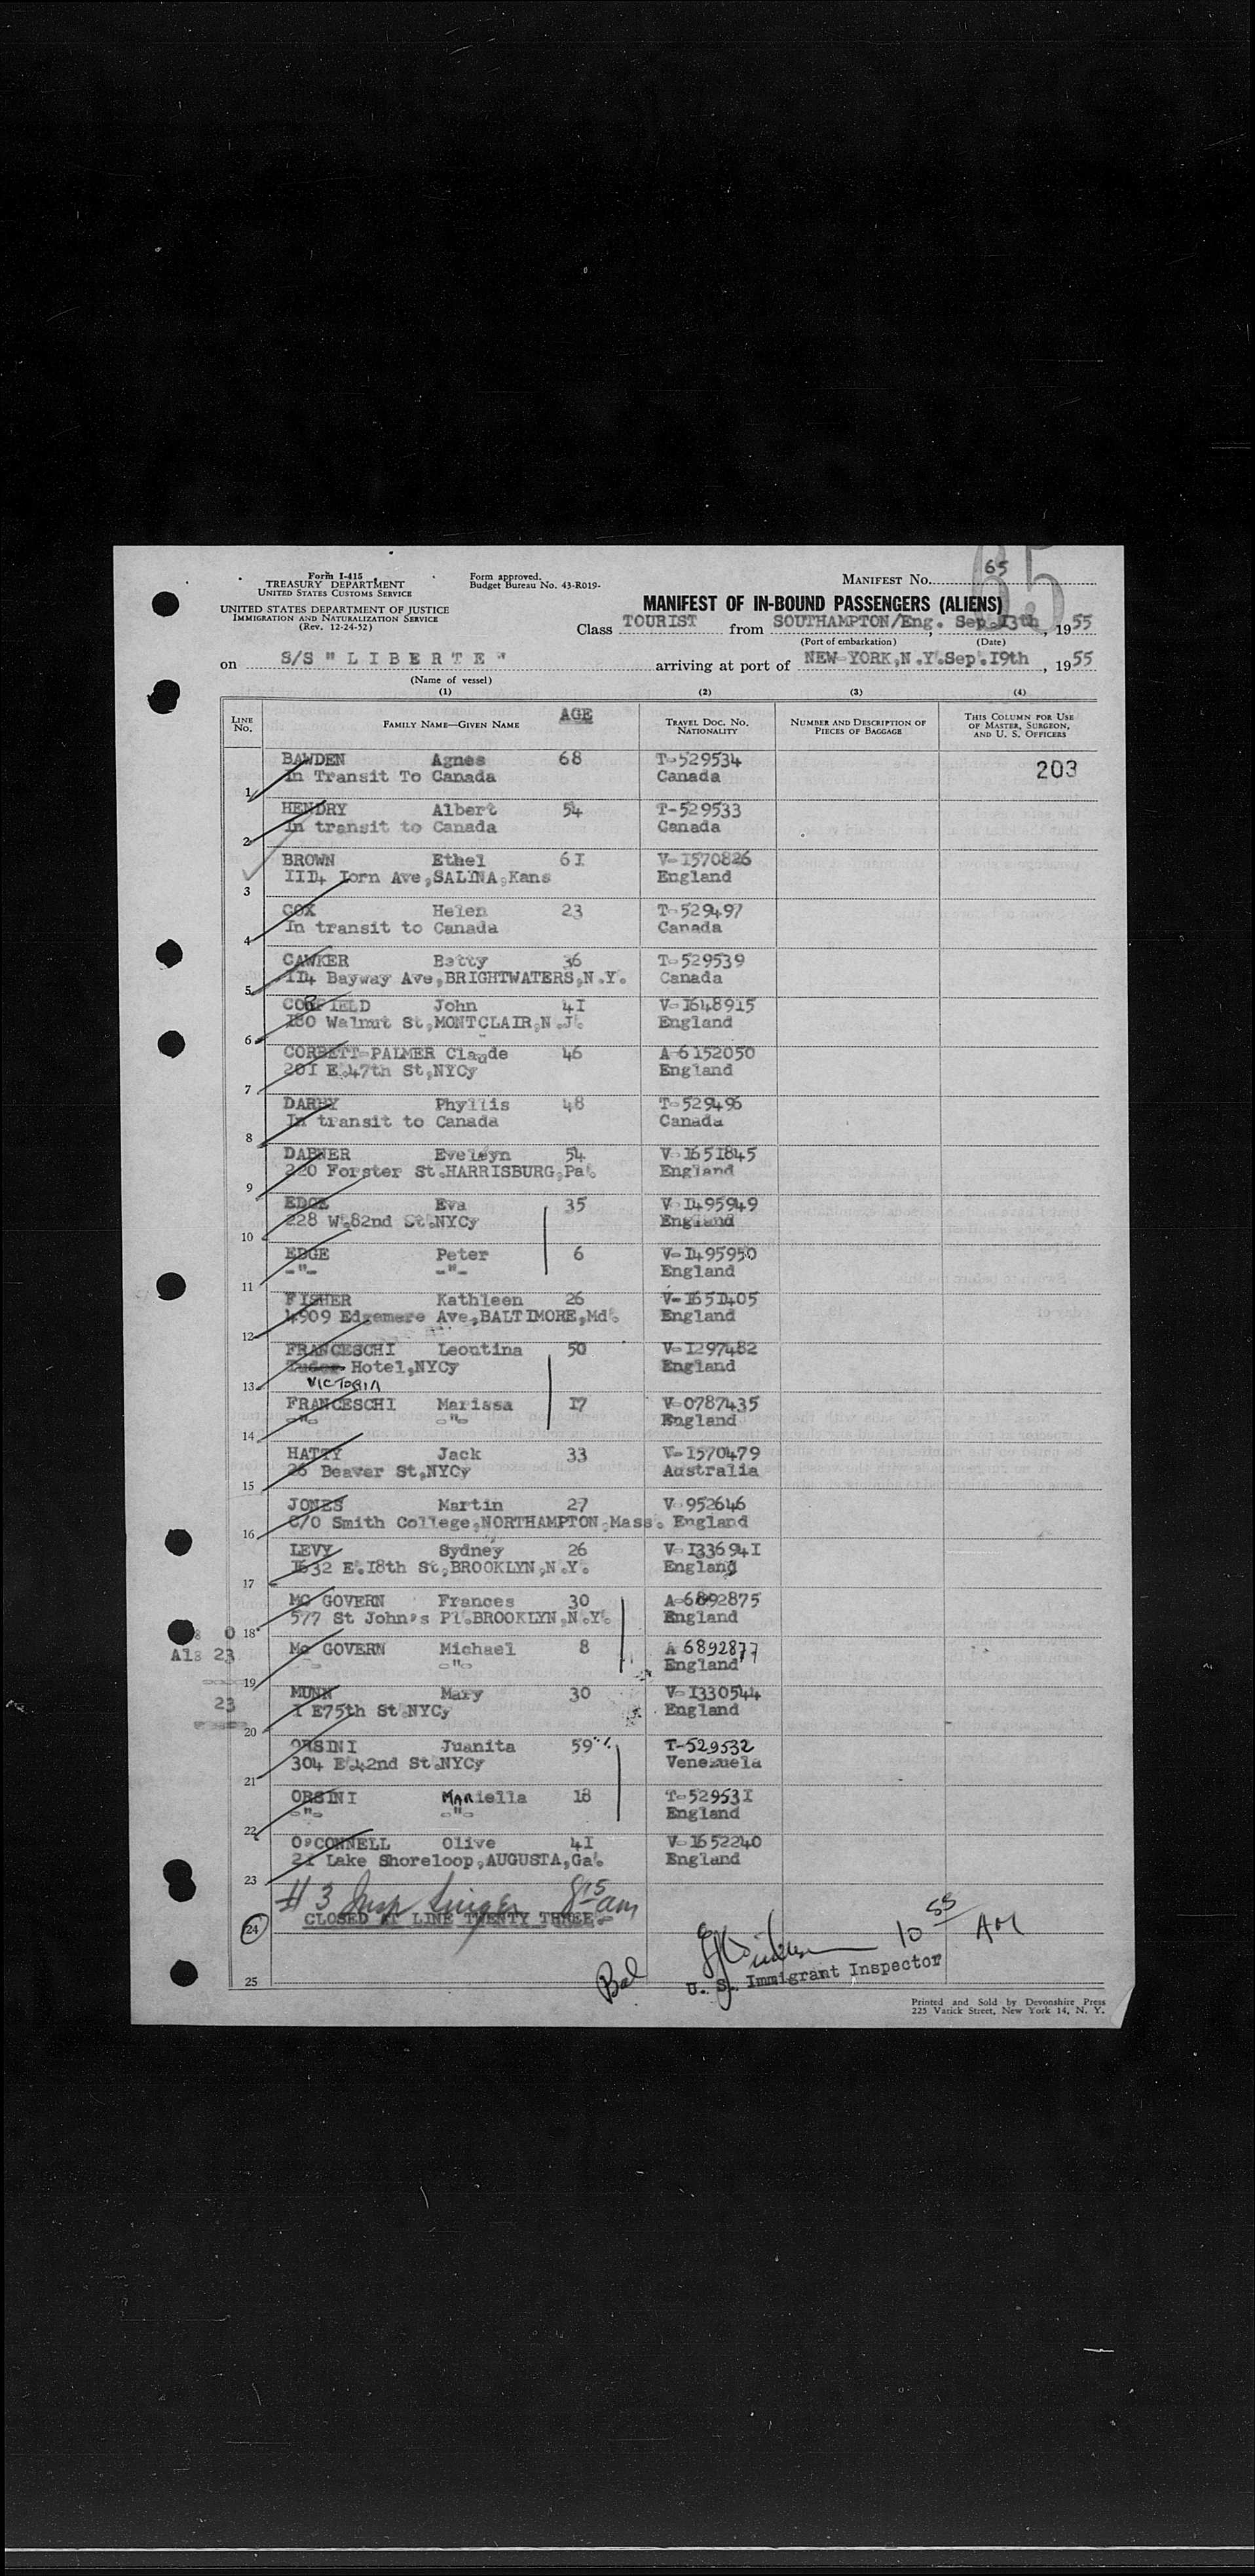 Form I-415
TREASURY DEPARTMENT
UNITED STATES CUSTOMS SERVICE
UNITED STATES DEPARTMENT OF JUSTICE
IMMIGRATION AND NATURALIZATION SERVICE
(Rev. 12-24-52)
Form approved.
Budget Bureau No. 43-R019-
MANIFEST NO. 65
65
MANIFEST OF IN-BOUND PASSENGERS (ALIENS)
Class TOURIST from SOUTHAMPTON/Eng. , Sep.I3th , 1955
(Port of embarkation) (Date)
on S/S " L I B E R T E " arriving at port of NEW-YORK,N.Y.Sep.I9th , 1955
(Name of vessel)
(1) (2) (3) (4)
LINE No. FAMILY NAME—GIVEN NAME AGE TRAVEL DOC. NO. NATIONALITY NUMBER AND DESCRIPTION OF PIECES OF BAGGAGE THIS COLUMN FOR USE OF MASTER, SURGEON, AND U. S. OFFICERS
BAWDEN Agnes 68 T-529534 203
1 In Transit To Canada Canada
HENDRY Albert 54 T-529533
2 In transit to Canada Canada
BROWN Ethel 6I V-I570826
3 III4 Iorn Ave,SALINA,Kans England
COX Helen 23 T-529497
4 In transit to Canada Canada
CAWKER Betty 36 T-529539
5 II4 Bayway Ave,BRIGHTWATERS,N.Y. Canada
CORFIELD John 4I V-I648915
6 I80 Walnut St,MONTCLAIR,N.J. England
CORBETT-PALMER Claude 46 A-6152050
7 20I E.47th St,NYCy England
DARBY Phyllis 48 T-529496
8 In transit to Canada Canada
DABNER Evelyn 54 V-I651845
9 220 Forster St.HARRISBURG,Pa. England
EDGE Eva 35 V-I495949
10 228 W.82nd St.NYCy England
EDGE Peter 6 V-I495950
11 -"- -"- England
FISHER Kathleen 26 V-I651405
12 4909 Edgemere Ave,BALTIMORE,Md. England
FRANCESCHI Leontina 50 V-I297482
Tudor Hotel,NYCy England
13 VICTORIA
FRANCESCHI Marissa I7 V-0787435
14 -"- -"- England
HATTY Jack 33 V-I570479
15 26 Beaver St,NYCy Australia
JONES Martin 27 V-952646
16 C/O Smith College,NORTHAMPTON,Mass. England
LEVY Sydney 26 V-I33694I
17 I632 E.I8th St,BROOKLYN,N.Y. England
MC GOVERN Frances 30 A-6892875
18 577 St John's Pl.BROOKLYN,N.Y. England
0
Mc GOVERN Michael 8 A 6892877
Al: 23
19 -"- England
MUNN Mary 30 V-I330544
23
20 I E75th St.NYCy England
ORSINI Juanita 59 T-529532
21 304 E.42nd St.NYCy Venezuela
ORSINI MARiella I8 T-52953I
22 -"- -"- England
O'CONNELL Olive 4I V-I652240
23 2I Lake Shoreloop,AUGUSTA,Ga. England
#3 Insp Singer 8 15 am
24 CLOSED AT LINE TWENTY THREE
10 55 AM
Bal U. S. Immigrant Inspector
25
Printed and Sold by Devonshire Press
225 Varick Street, New York 14, N. Y.